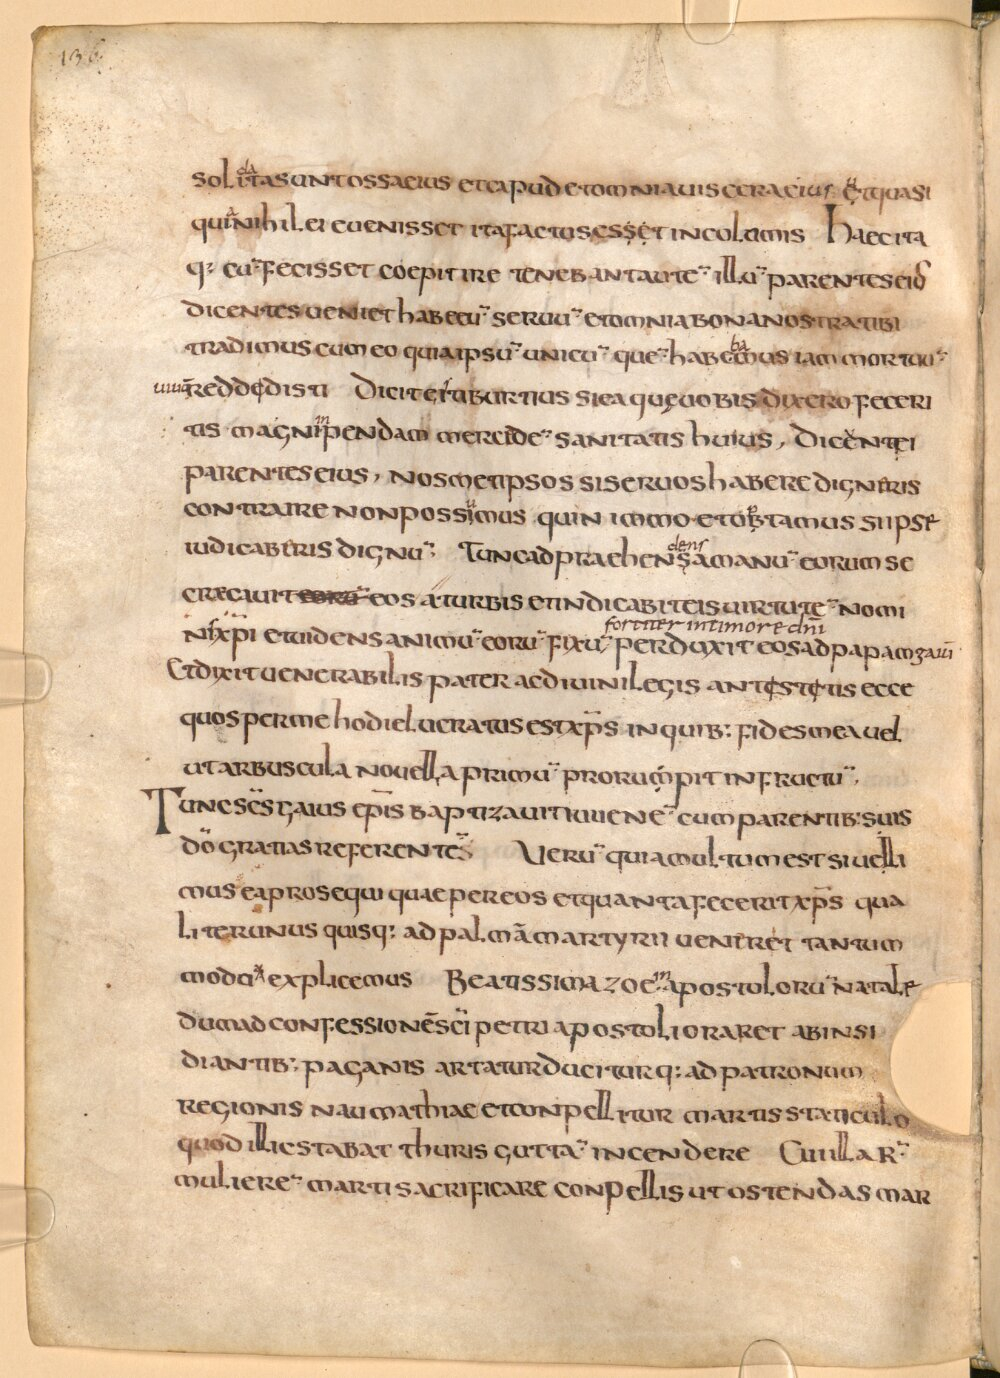 136
solitasunt ossaeius et caput et omnia uiscera eius et quasi
qui nihil ei euenisset ita factus esset incolomis Haec ita
q: cũ fecisset coepit ire tenebant autẽ illũ parentes eius
dicentes ueni et habetũ seruũ et omnia bona nostra tibi
tradimus cum eo quia ipsũ unicũ quẽ habemus iam mortuũ
uiuũ reddedisti Dicit ei tiburtius si ea quę uobis dixero feceri
tis magni pendam mercidẽ sanitatis huius, Dicentei
parentes eius, nosmetipsos si seruos habere digneris
contraire non possimus quin immo et obtamus si ipse
iudicaberis dignũ. Tunc adpraehensa manũ eorum se
creguit eos a turbis et indicabit eis uirtutẽ nomi
nis xp̃i et uidens animũ eorũ fixũ perduxit eos ad papam gaiũ
fortiter in timore dñi
Et dixit uenerabilis pater ac diuini legis antestetis ecce
quos per me hodie lucratus est xp̃s in quib: fides mea uel
ut arbuscula nouella primũ prorumpit in fructũ.
Tunc sc̃s gaius ep̃is baptizauit iuuenẽ cum parentib: suis
dõ gratias referentes Uerũ quia multum est si uelli
mus ea prosequi quae per eos et quanta fecerit xp̃s qua
liter unus quisq: ad palmã martyrii ueniret tantum
modo explicemus Beatissima zoe in apostolorũ natale
dum ad confessionẽ sc̃i petri apostoli oraret ab insi
diantib: paganis artatur ducitur q: ad patronum
regionis naumathiae et conpellitur martis staticulo
quod illic stabat thuris guttã incendere Cui illa R̃
mulierẽ marti sacrificare conpellis ut ostendas mar